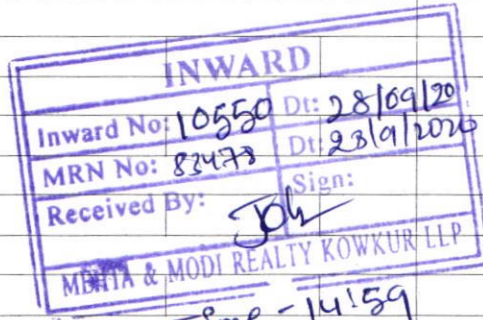 INWARD
Inward No: 10550 Dt: 28/09/20
MRN No: 83478 Dt: 28/9/2020
Received By: Sign:
MEHTA & MODI REALTY KOWKUR LLP
Time - 14:59